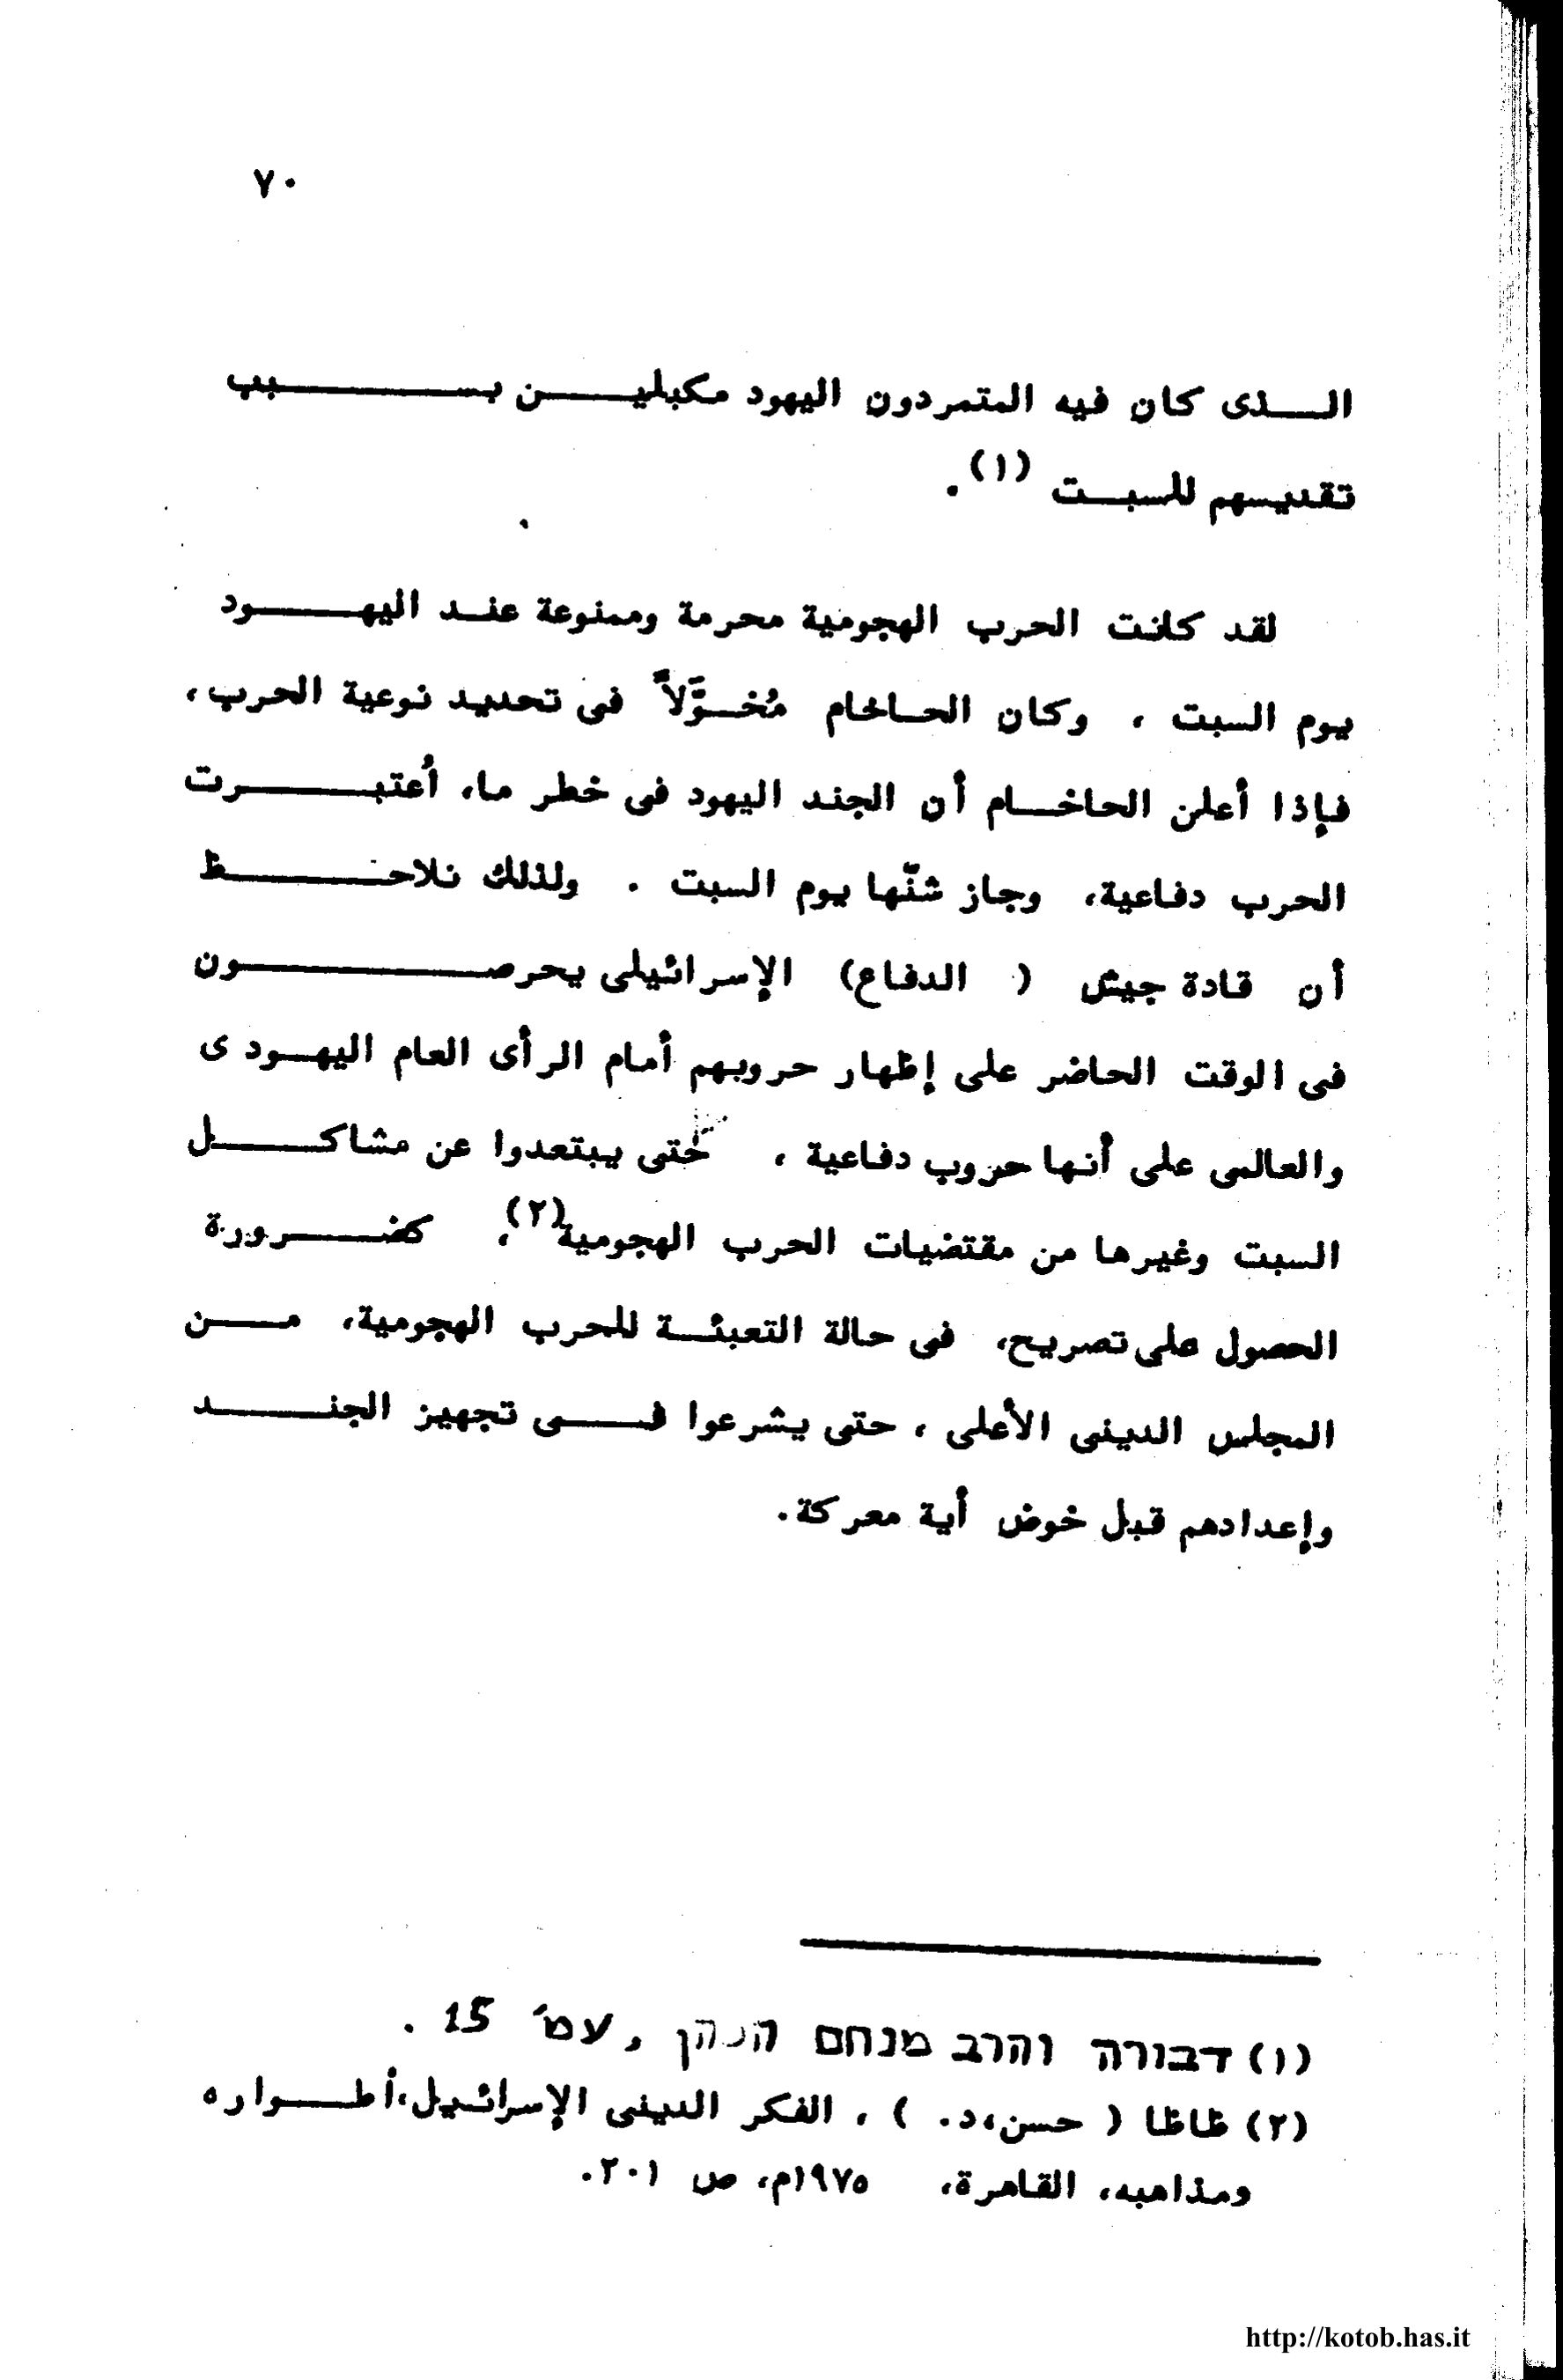 ٧٠
الذى كان فيه المتمردون اليهود مكبلين بسبب
تقديسهم للسبت (١).
لقد كانت الحرب الهجومية محرمة وممنوعة عند اليهود
يوم السبت ، وكان الحاخام مُخوَّلاً فى تحديد نوعية الحرب،
فإذا أعلن الحاخام أن الجند اليهود فى خطر ما، اُعتبرت
الحرب دفاعية، وجاز شنّها يوم السبت . ولذلك نلاحظ
أن قادة جيش ( الدفاع) الإسرائيلى يحرصون
فى الوقت الحاضر على إظهار حروبهم أمام الرأى العام اليهودى
والعالمى على أنها حروب دفاعية ، حتى يبتعدوا عن مشاكل
السبت وغيرها من مقتضيات الحرب الهجومية(٢)، كضرورة
الحصول على تصريح، فى حالة التعبئة للحرب الهجومية، من
المجلس الدينى الأعلى ، حتى يشرعوا فى تجهيز الجند
وإعدادهم قبل خوض أية معركة.
(١) דבורה והרב מנחם הכהן , עמ' 15 .
(٢) ظاظا ( حسن،د. ) ، الفكر الدينى الإسرائيلى،أطواره
ومذاهبه، القاهرة، ١٩٧٥م، ص ٢٠١.
http://kotob.has.it